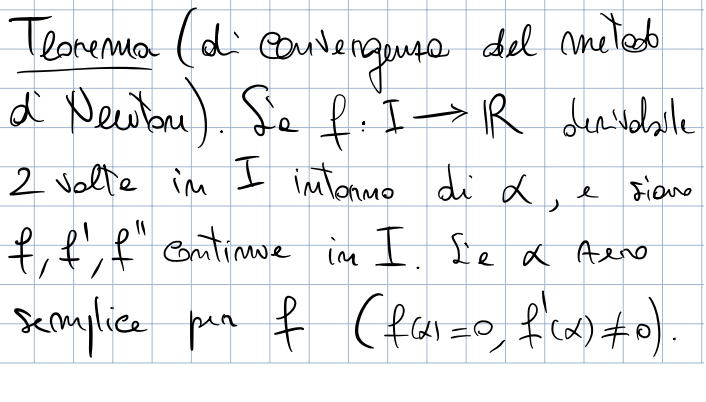 Teorema (di convergenza del metodo
di Newton). Sia f: I → ℝ derivabile
2 volte in I intorno di α, e siano
f, f', f'' continue in I. Sia α zero
semplice per f (f(α)=0, f'(α)≠0).